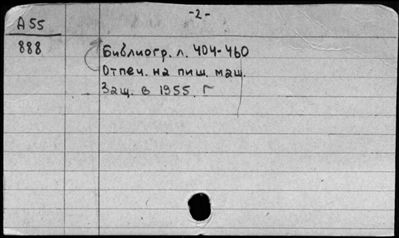 -2-
А 55
888
Библиогр. л. 404-460
Отпеч. на пиш. маш.
Защ. в 1955 г